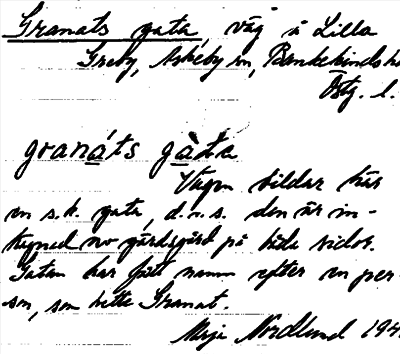 Granats gata, väg å Lilla
Greby, Askeby sn, Bankekinds h
Östg. l.
granáts gàta
Vägen bildar här
en s.k. gata, d.v.s. den är in-
hägnad av gärdsgård på båda sidor.
Gatan har fått namn efter en per-
son, som hette Granat.
Maja Nordlund 194